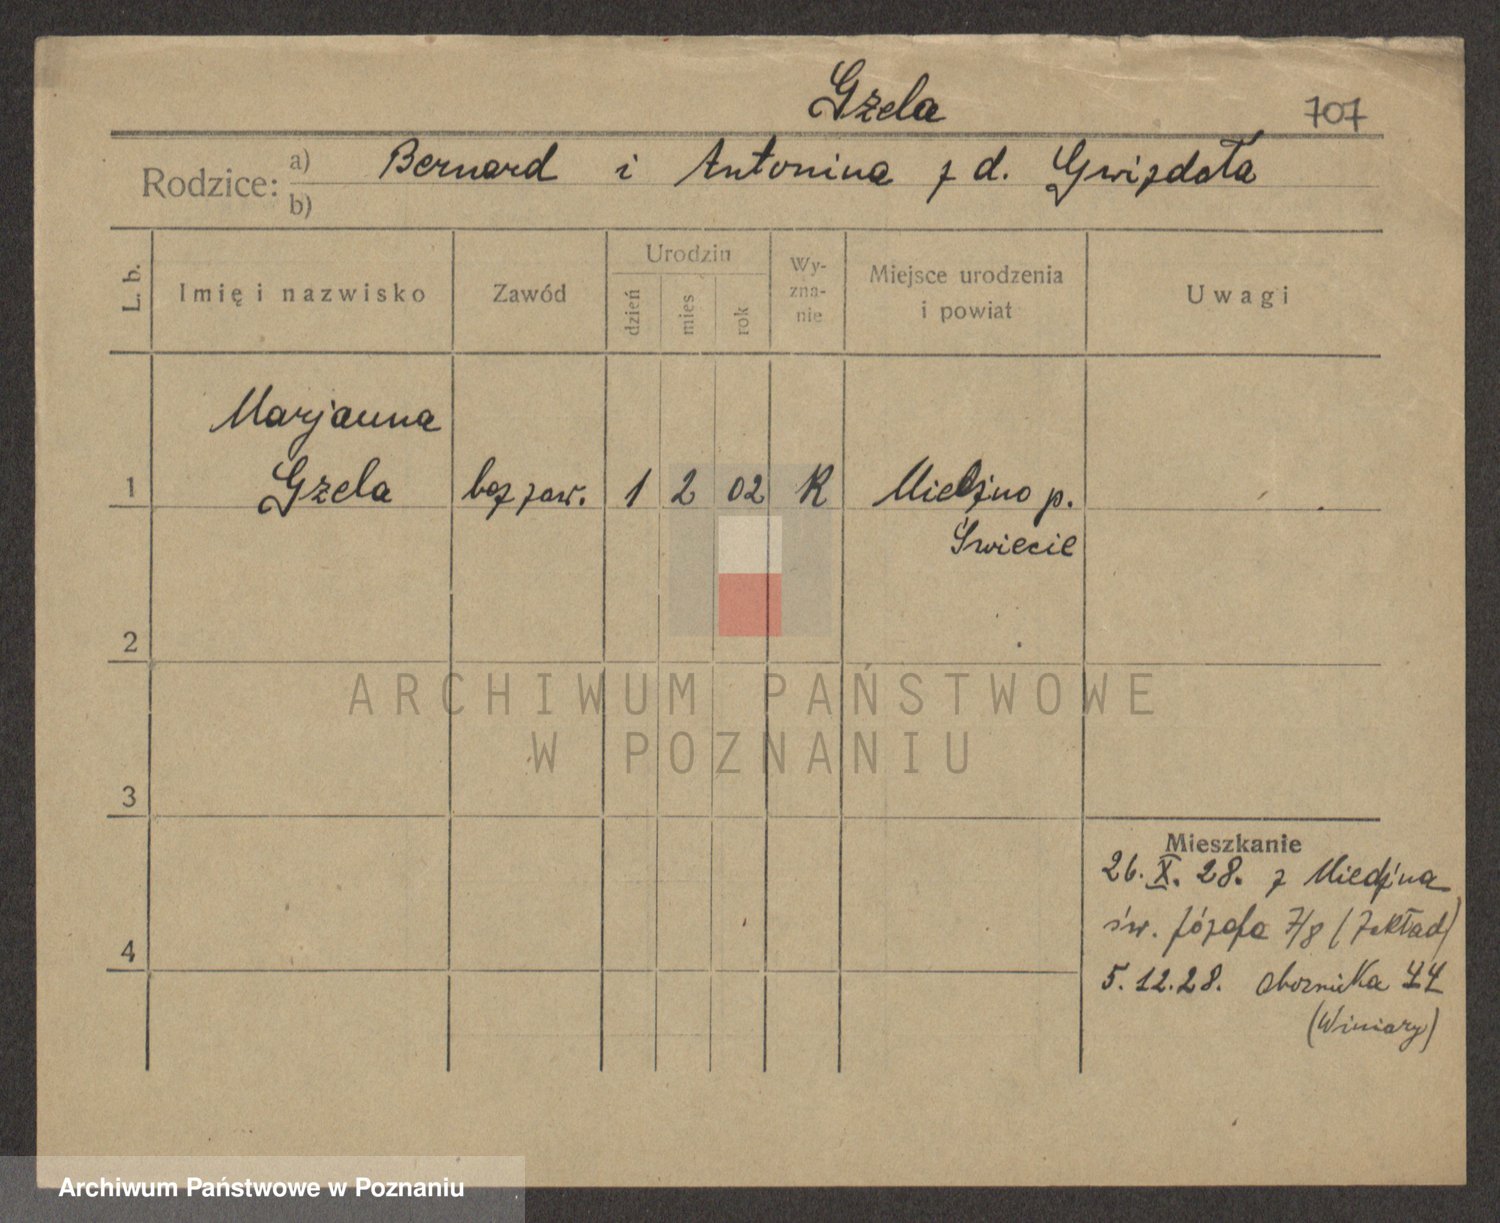 Gzela
707
Rodzice:
a) Bernard i Antonina z d. Gwizdała
b)
L. b.
Imię i nazwisko
Zawód
Urodzin
dzień
mies
rok
Wy-
zna-
nie
Miejsce urodzenia
i powiat
Uwagi
Marjanna
1 Gzela bez zaw. 1 2 02 R Miedzno p.
Świecie
2
3
4
ARCHIWUM PAŃSTWOWE
W POZNANIU
Mieszkanie
26. X. 28. z Miedzna
św. Józefa 7/8 (Zakład)
5. 12. 28. Obornicka
(Winiary)
Archiwum Państwowe w Poznaniu